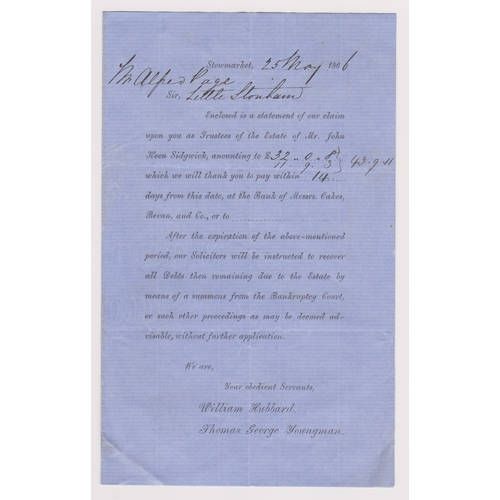 Stowmarket, 25 May 1866
Mr Alfred Page
Sir, Little Stonham
Enclosed is a statement of our claim
upon you as Trustees of the Estate of Mr. John
Keen Sidgwick, amounting to £32 .. 0 .. 8
11 .. 9 .. 3 } 43-9-11
which we will thank you to pay within 14
days from this date, at the Bank of Messrs. Oakes,
Bevan, and Co., or to
After the expiration of the above-mentioned
period, our Solicitors will be instructed to recover
all Debts then remaining due to the Estate by
means of a summons from the Bankruptcy Court,
or such other proceedings as may be deemed ad-
visable, without further application.
We are,
Your obedient Servants,
William Hubbard.
Thomas George Youngman.